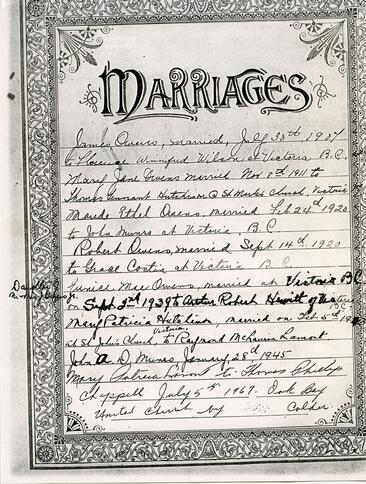 MARRIAGES
James Owens, married, July 30th 1907
to Florence Winnifred Wilson at Victoria B.C.
Marie Jane Owens married Nov 8th 1911 to
Thomas Hutchison @ St Marks Church, Victoria
Maude Ethel Owens, married Feb 24th 1920
to John Munro at Victoria, B.C
Robert Owens, married Sept 14th 1920
to Grace at Victoria B.C.
Daughter of
Eunice Mae Owens, married at Victoria BC
on Sept 3rd 1939 to Robert Hewitt of Victoria
Mary Patricia Hutchison, married on Feb. 5th
at St John's Church, Victoria, to Raymond Lamont
John A. D. Munro January 28th 1945
Mary Patricia Lamont to Thomas Phillip
Chappell July 5th 1967. Oak Bay
United Church by Calder.